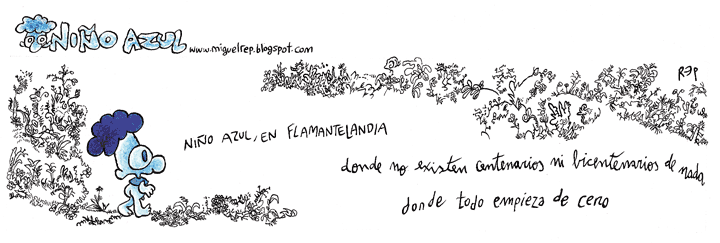 NIÑO AZUL www.miguelrep.blogspot.com
REP
NIÑO AZUL, EN FLAMANTELANDIA
donde no existen centenarios ni bicentenarios de nada,
donde todo empieza de cero